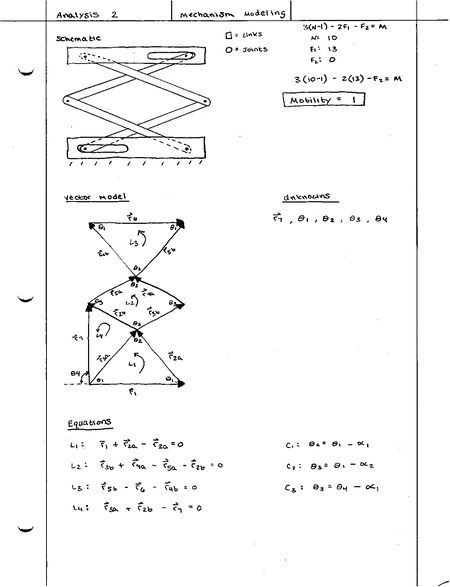 Analysis 2
Mechanism Modeling
Schematic
□ = Links
O = Joints
3(N-1) - 2F₁ - F₂ = M
N: 10
F₁: 13
F₂: 0
3(10-1) - 2(13) - F₂ = M
Mobility = 1
Vector Model
Unknowns
r⃗₇, θ₁, θ₂, θ₃, θ4
r⃗₆
θ₁
θ₁
L3
r⃗4b
r⃗5b
θ₂
θ₂
r⃗5a
r⃗4a
L2
θ₃
r⃗2b
r⃗3b
L4
θ₂
θ₂
L1
r⃗2a
θ4
θ₁
θ₁
r⃗₁
Equations
L1: r⃗₁ + r⃗2a - r⃗3a = 0
L2: r⃗3b + r⃗4a - r⃗5a - r⃗2b = 0
L3: r⃗5b - r⃗6 - r⃗4b = 0
L4: r⃗3a + r⃗2b - r⃗7 = 0
C₁: θ₂ = θ₁ - α₁
C₂: θ₃ = θ₁ - α₂
C₃: θ₃ = θ4 - α₁